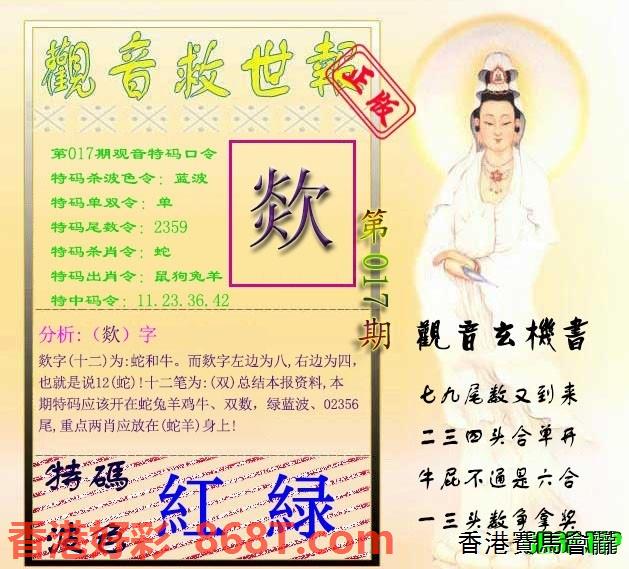 觀音救世報
正版
第017期观音特码口令
特码杀波色令: 蓝波
特码单双令: 单
特码尾数令: 2359
特码杀肖令: 蛇
特码出肖令: 鼠狗兔羊
特中码令: 11.23.36.42
欻
第017期
分析:（欻）字
欻字(十二)为:蛇和牛。而欻字左边为八,右边为四,
也就是说12(蛇)!十二笔为:(双)总结本报资料,本
期特码应该开在蛇兔羊鸡牛、双数，绿蓝波、02356
尾,重点两肖应放在(蛇羊)身上!
特碼
波色
紅 緑
觀音玄機書
七九尾数又到来
二三四头合单开
牛屁不通是六合
一三头数争拿奖
香港好彩 868T.com
香港賽馬會